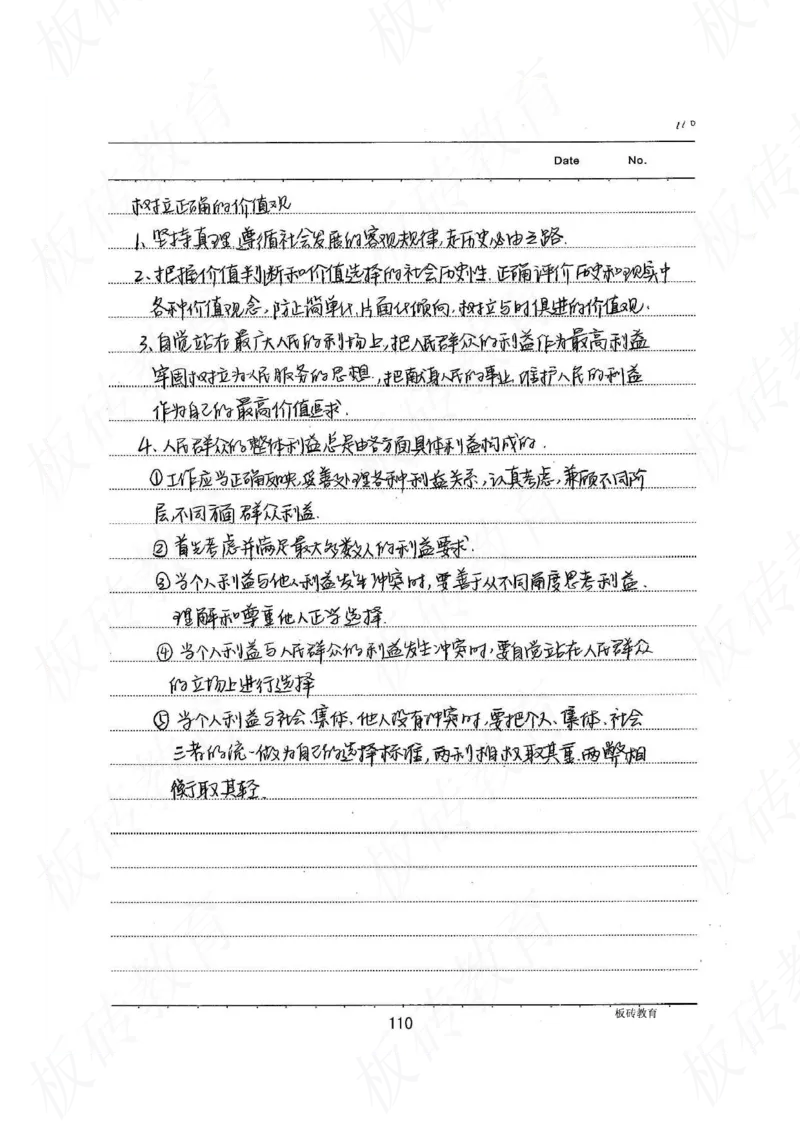 110
Date No.
树立正确的价值观
1、坚持真理,遵循社会发展的客观规律,走历史必由之路.
2、把握价值判断和价值选择的社会历史性.正确评价历史和现实中
各种价值观念,防止简单化、片面化倾向,树立与时俱进的价值观.
3、自觉站在最广大人民的利场上,把人民群众的利益作为最高利益
牢固树立为人民服务的思想,把献身人民的事业,维护人民的利益
作为自己的最高价值追求.
4、人民群众的整体利益总是由各方面具体利益构成的.
①工作应当正确反映,妥善处理各种利益关系,认真考虑,兼顾不同阶
层,不同方面群众利益.
②首先考虑并满足最大多数人的利益要求.
③当个人利益与他人利益发生冲突时,要善于从不同角度思考利益.
理解和尊重他人正当选择.
④当个人利益与人民群众的利益发生冲突时,要自觉站在人民群众
的立场上进行选择
⑤当个人利益与社会、集体、他人没有冲突时,要把个人、集体、社会
三者的统一做为自己的选择标准,两利相权取其重.两弊相
衡取其轻.
110
板砖教育